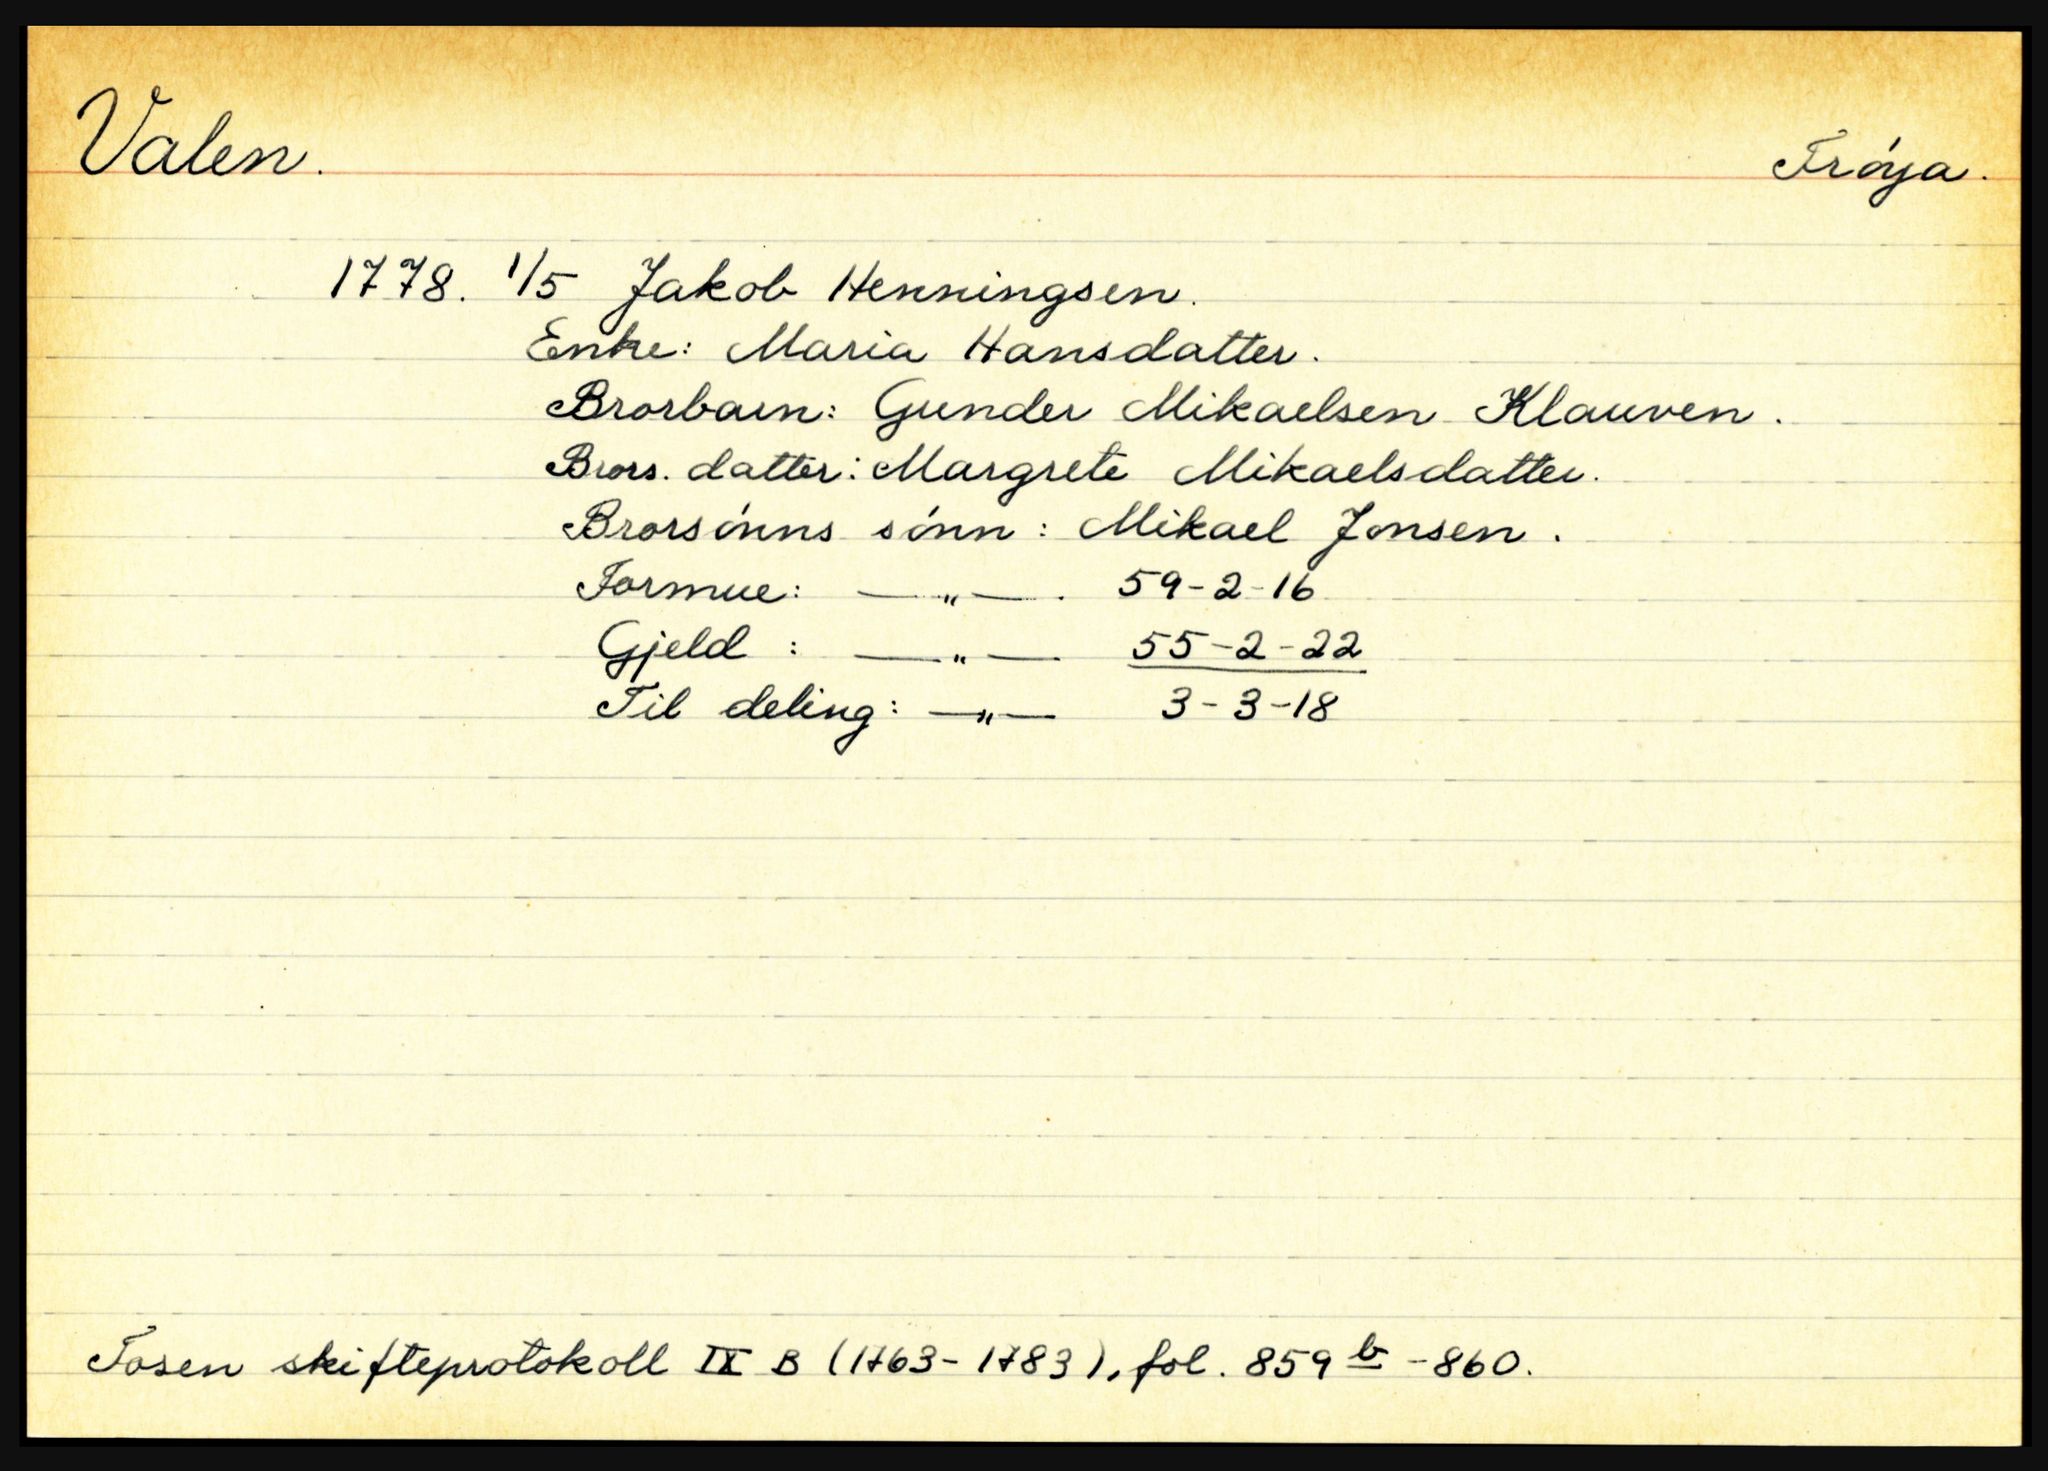 Valen.
Frøya.
1778. 1/5 Jakob Henningsen.
Enke: Maria Hansdatter.
Brorbarn: Gunder Mikaelsen Klauven.
Brors. datter: Margrete Mikaelsdatter.
Brorsønns sønn: Mikael Jonsen.
Formue: —„— . 59-2-16
Gjeld : —„— 55-2-22
Til deling: —„— 3-3-18
Fosen skifteprotokoll IX B (1763-1783), fol. 859 b -860.